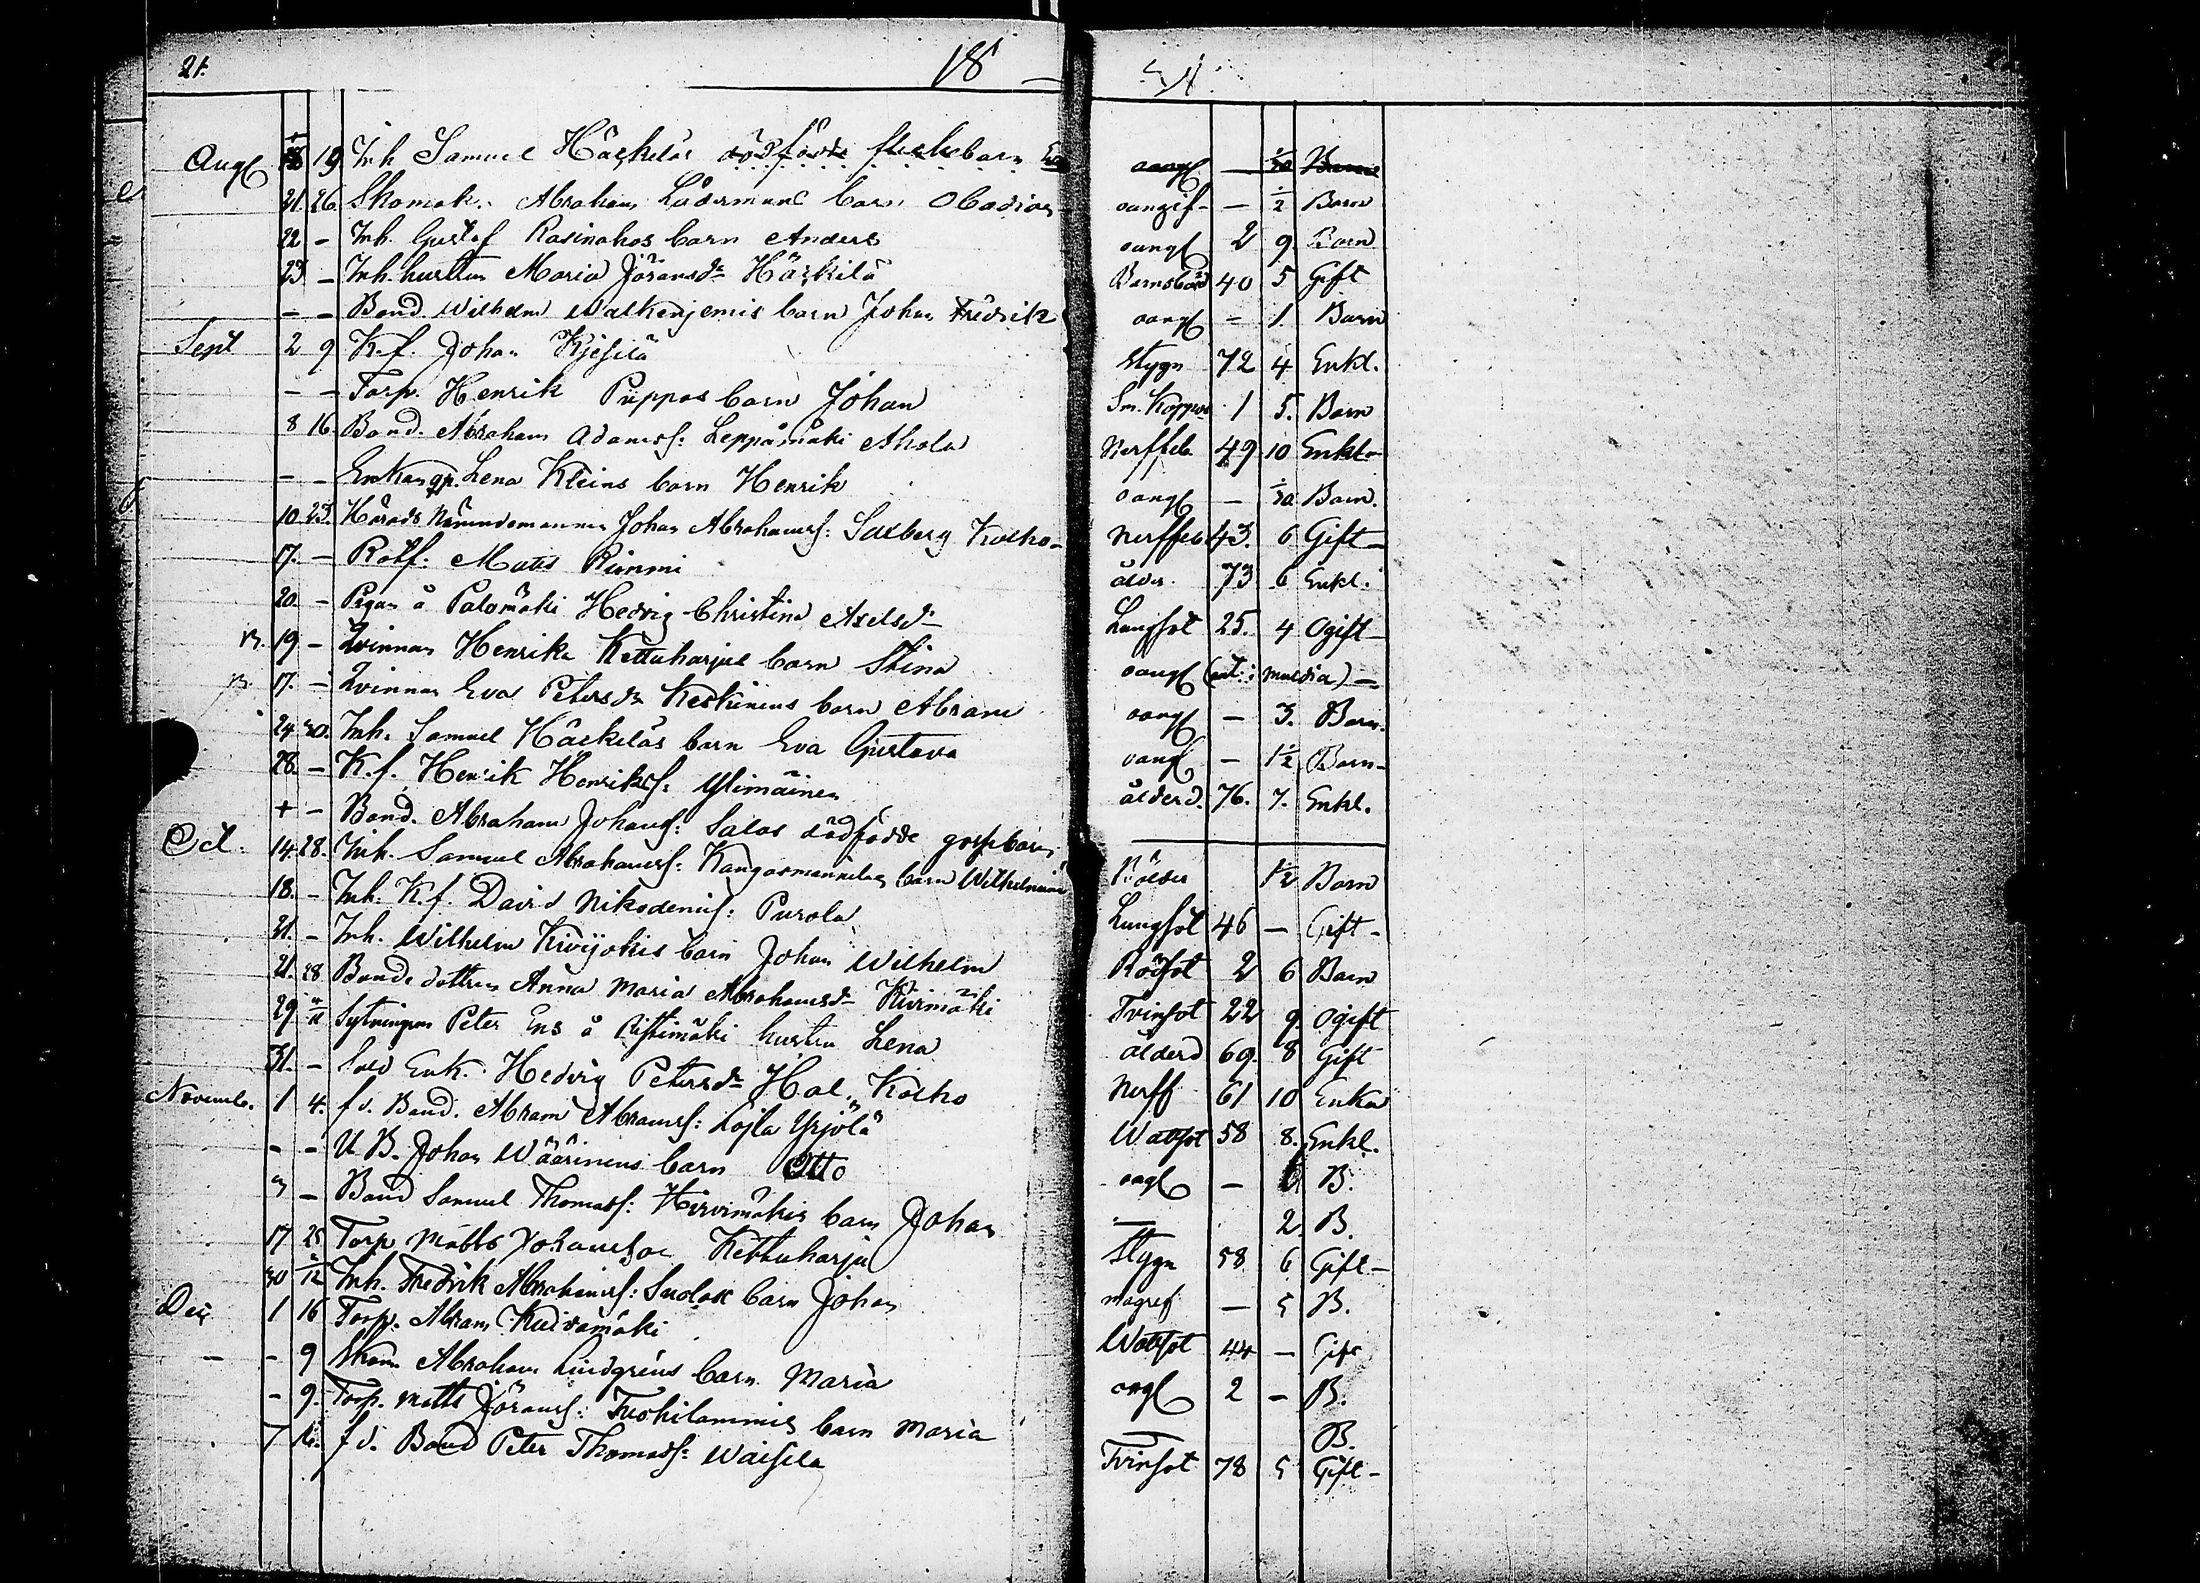 21. 18 51.
Aug 19 Inh Samuel Häckilös dödfödde flickebarn oangf — Barn
21. 26. Skomak. Abraham Lådermans barn Obadias oangif — 1/2 Barn
22 — Inh. Gustaf Rasinahos barn Anders oangf 2 9. Barn
23 — Inh. hustrun Maria Jöransdr Häckilä Barnsbörd 40 5 Gift
— — Bond. Wilhelm Walkenjemis barn Johan Fredrik oangf — 1. Barn
Sept 2 9 K.f. Johan Kjefilä Stygn 72 4 Enkl.
— — Torp. Henrik Puppas barn Johan Sm. Koppor 1 5. Barn
8 16. Bond. Abraham Adamsf: Leppämäki Ahola Nerffeb 49 10 Enkl—
— — Enkans Lena Kleins barn Henrik oangf — Barn.
10. 23. Härads Nämndemannen Johan Abrahamsf: Salberg Kolho— Nerffeb 43. 6 Gift—
17. — Rotf. Matts Rimmi ålder. 73 6 Enkl.
20. — Pigan å Palomäki Hedvig Christina Axelsdr Lungsot 25. 4 Ogift—
19 — Qvinnan Henrika Kettuharjus barn Stina oangf
17. — Qvinnan Eva Petersdr Keskinens barn Abram oangf — 3. Barn.
24. 30. Inh. Samuel Häckiläs barn Eva Gustava oangf — 1/2 Barn—
28. — K.f. Henrik Henriksf: Ylimäinen ålderd. 76. 7. Enkl.
+ — Bond. Abraham Johansf: Salos dödfödde gossebarn
Oct. 14. 28. Inh. Samuel Abrahamsf: Kangasmannilas barn Wilhelmina 1/2 Barn
18. — Inh. K.f. David Nikodemusf: Purola Lungsot 46 — Gift—
21. — Inh. Wilhelm Kivijokis barn Johan Wilhelm Rödsot 2 6 Barn
21. 28 Bonde dottren Anna Maria Abrahamsdr Kivimäki Tvinsot 22 9. Ogift
29 Sytningm Peter Ens å Ristimäki hustru Lena ålderd 69. 8 Gift
31. — Sold Enk. Hedvig Petersdr Hal. Kolho Nerff 61 10 Enka
Novemb. 1 4. f d. Bond. Abram Abramsf: Löjla Yrjölä Wattsot 58 8. Enkl.
— — U B. Johan Wäärinens barn Otto oagf — B.
3 — Bond Samuel Thomasf: Hirvimäkis barn Johan — 2. B.
17 25 Torp Matts Johansson Kettuharju Stygn 58 6 Gift—
30 Inh. Fredrik Abrahamsf: Suolas barn Johan magref — 5 B.
Dec 1 16 Torp. Abram Kuivamäki Wattsot 44 — Gift
— 9 Skom Abraham Lindgrens barn Maria oagf 2 — B.
— 9. Torp. Matts Jöransf: Tuohilammis barn Maria — B.
7 16. f d. Bond Peter Thomasf: Waisila Tvinsot 78 5 Gift—